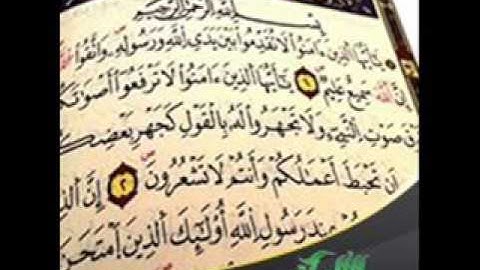 بِسْمِ ٱللَّهِ ٱلرَّحْمَٰنِ ٱلرَّحِيمِ
يَٰٓأَيُّهَا ٱلَّذِينَ ءَامَنُوا۟ لَا تُقَدِّمُوا۟ بَيْنَ يَدَىِ ٱللَّهِ وَرَسُولِهِۦ وَٱتَّقُوا۟
إِنَّ ٱللَّهَ سَمِيعٌ عَلِيمٌ ١ يَٰٓأَيُّهَا ٱلَّذِينَ ءَامَنُوا۟ لَا تَرْفَعُوٓا۟ أَصْوَٰتَكُ
صَوْتِ ٱلنَّبِىِّ وَلَا تَجْهَرُوا۟ لَهُۥ بِٱلْقَوْلِ كَجَهْرِ بَعْضِكُ
أَن تَحْبَطَ أَعْمَٰلُكُمْ وَأَنتُمْ لَا تَشْعُرُونَ ٢ إِنَّ ٱلَّذِ
عِندَ رَسُولِ ٱللَّهِ أُو۟لَٰٓئِكَ ٱلَّذِينَ ٱمْتَحَنَ